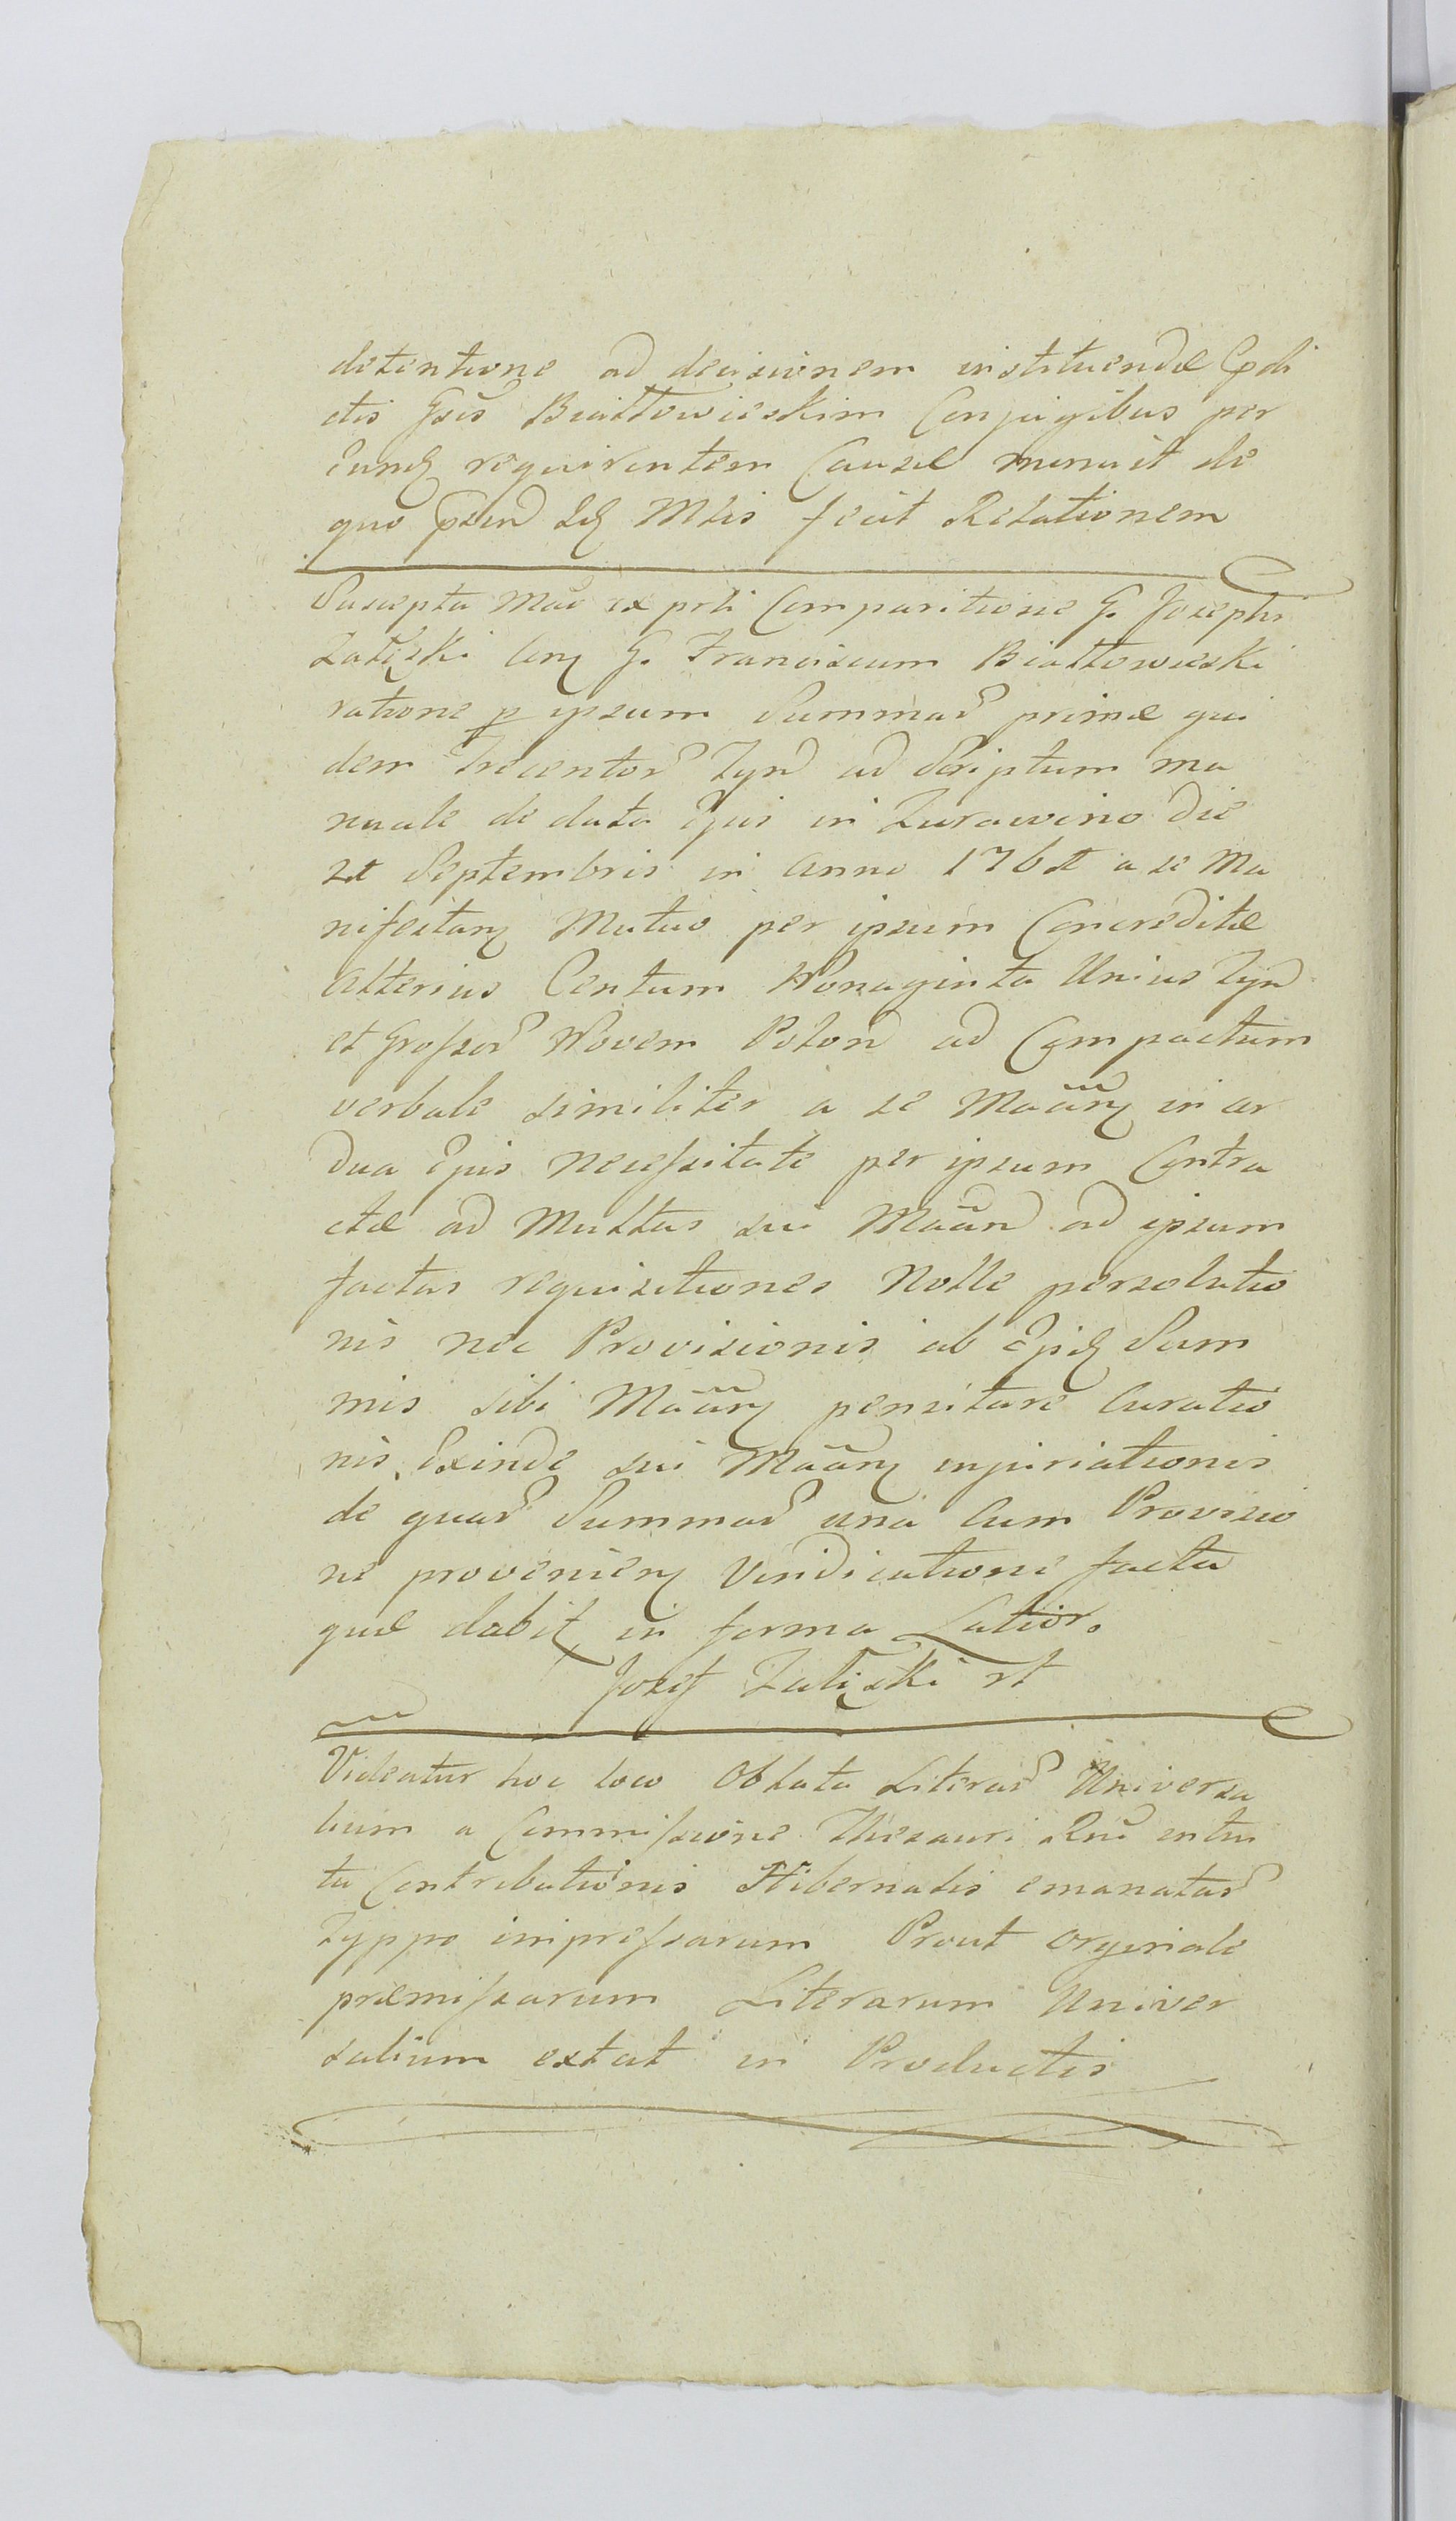 detentione ad decisionem instituendæ Pdi
ctis Gsis Białłowieskim Conjugibus per
eundq requirentem Causæ munivit de
quo psen Idq Mtis fecit Relationem
Suscepta Mão ex pti Comparitione G. Josephi
Załęski Conq G. Franciscum Białłowieski
ratione p ipsum Summar primæ qui
dem Trecentor Tyn ad Scriptum ma
nuale de data Ejus in Zurawino die
in Anno a se Ma
Septembris
nifestanq Mutuo per ipsum Concreditæ
Alterius Centum Nonaginta Unius Tyn
et Grossor Novem Polon ad Compactum
verbale similiter a se Mããnq in ar
dua Ejus necessitate per ipsum Contra
ctæ ad Multas sui Mããn ad ipsum
factas requisitiones Nolle persolutio
nis nec Provisionis ab Ejsdq Sum
mis sibi Mããnq pensitare Curatio
nis, Exinde sui Mããnq injuriationis
de quar Summar una Cum Provisio
ne provenienq Vindicatione facta
quæ dabit in forma Latior.
Jozef Załęski rt
Videatur hoc loco Oblata Literar Universa
lium a Commissione Thesauri Rni intui
tu Contributionis Hibernalis emanatar
Typpo impressarum Prout orginale
præmissarum Literarum Univer
salium extat in Productis